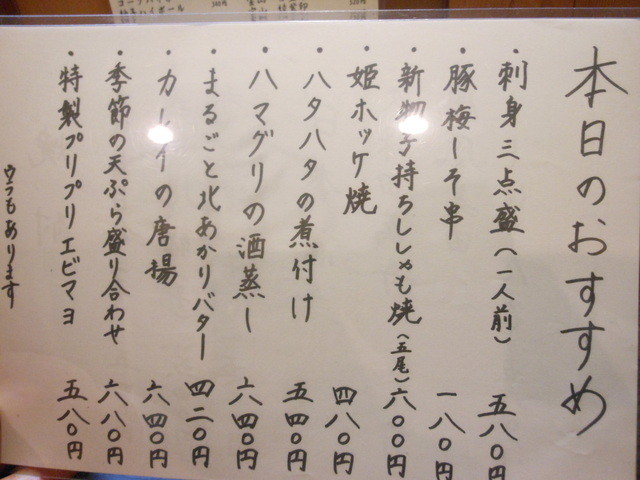 本日のおすすめ
・刺身三点盛(一人前) 五八〇円
・豚梅しそ串 一八〇円
・新物子持ちししゃも焼(五尾) 六〇〇円
・姫ホッケ焼 四八〇円
・ハタハタの煮付け 五四〇円
・ハマグリの酒蒸し 六四〇円
・まるごと北あかりバター 四二〇円
・カレイの唐揚 六四〇円
・季節の天ぷら盛り合わせ 六八〇円
・特製プリプリエビマヨ 五八〇円
ウラもあります